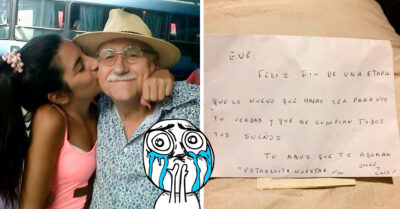 EVE
FELIZ FIN DE UNA ETAPA
QUE LO NUEVO QUE HAGAS SEA PARA VOS
TU VERDAD Y QUE SE CUMPLAN TODOS
TUS SUEÑOS
TU ABUS QUE TE ADORAN
"ESTRELLITA NUESTRA